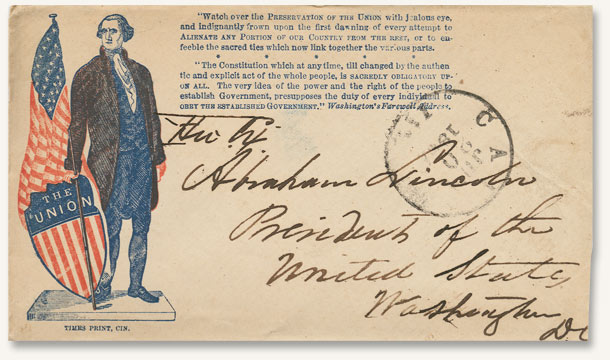 "Watch over the PRESERVATION OF THE UNION with jealous eye,
and indignantly frown upon the first dawning of every attempt to
ALIENATE ANY PORTION OF OUR COUNTRY FROM THE REST, or to en-
feeble the sacred ties which now link together the various parts.
"The Constitution which at any time, till changed by the authen
tic and explicit act of the whole people, is SACREDLY OBLIGATORY UP-
ON ALL. The very idea of the power and the right of the people to
establish Government, presupposes the duty of every individual to
OBEY THE ESTABLISHED GOVERNMENT." Washington's Farewell Address.
Abraham Lincoln
President of the
United States
Washington
DC
THE
UNION
TIMES PRINT, CIN.